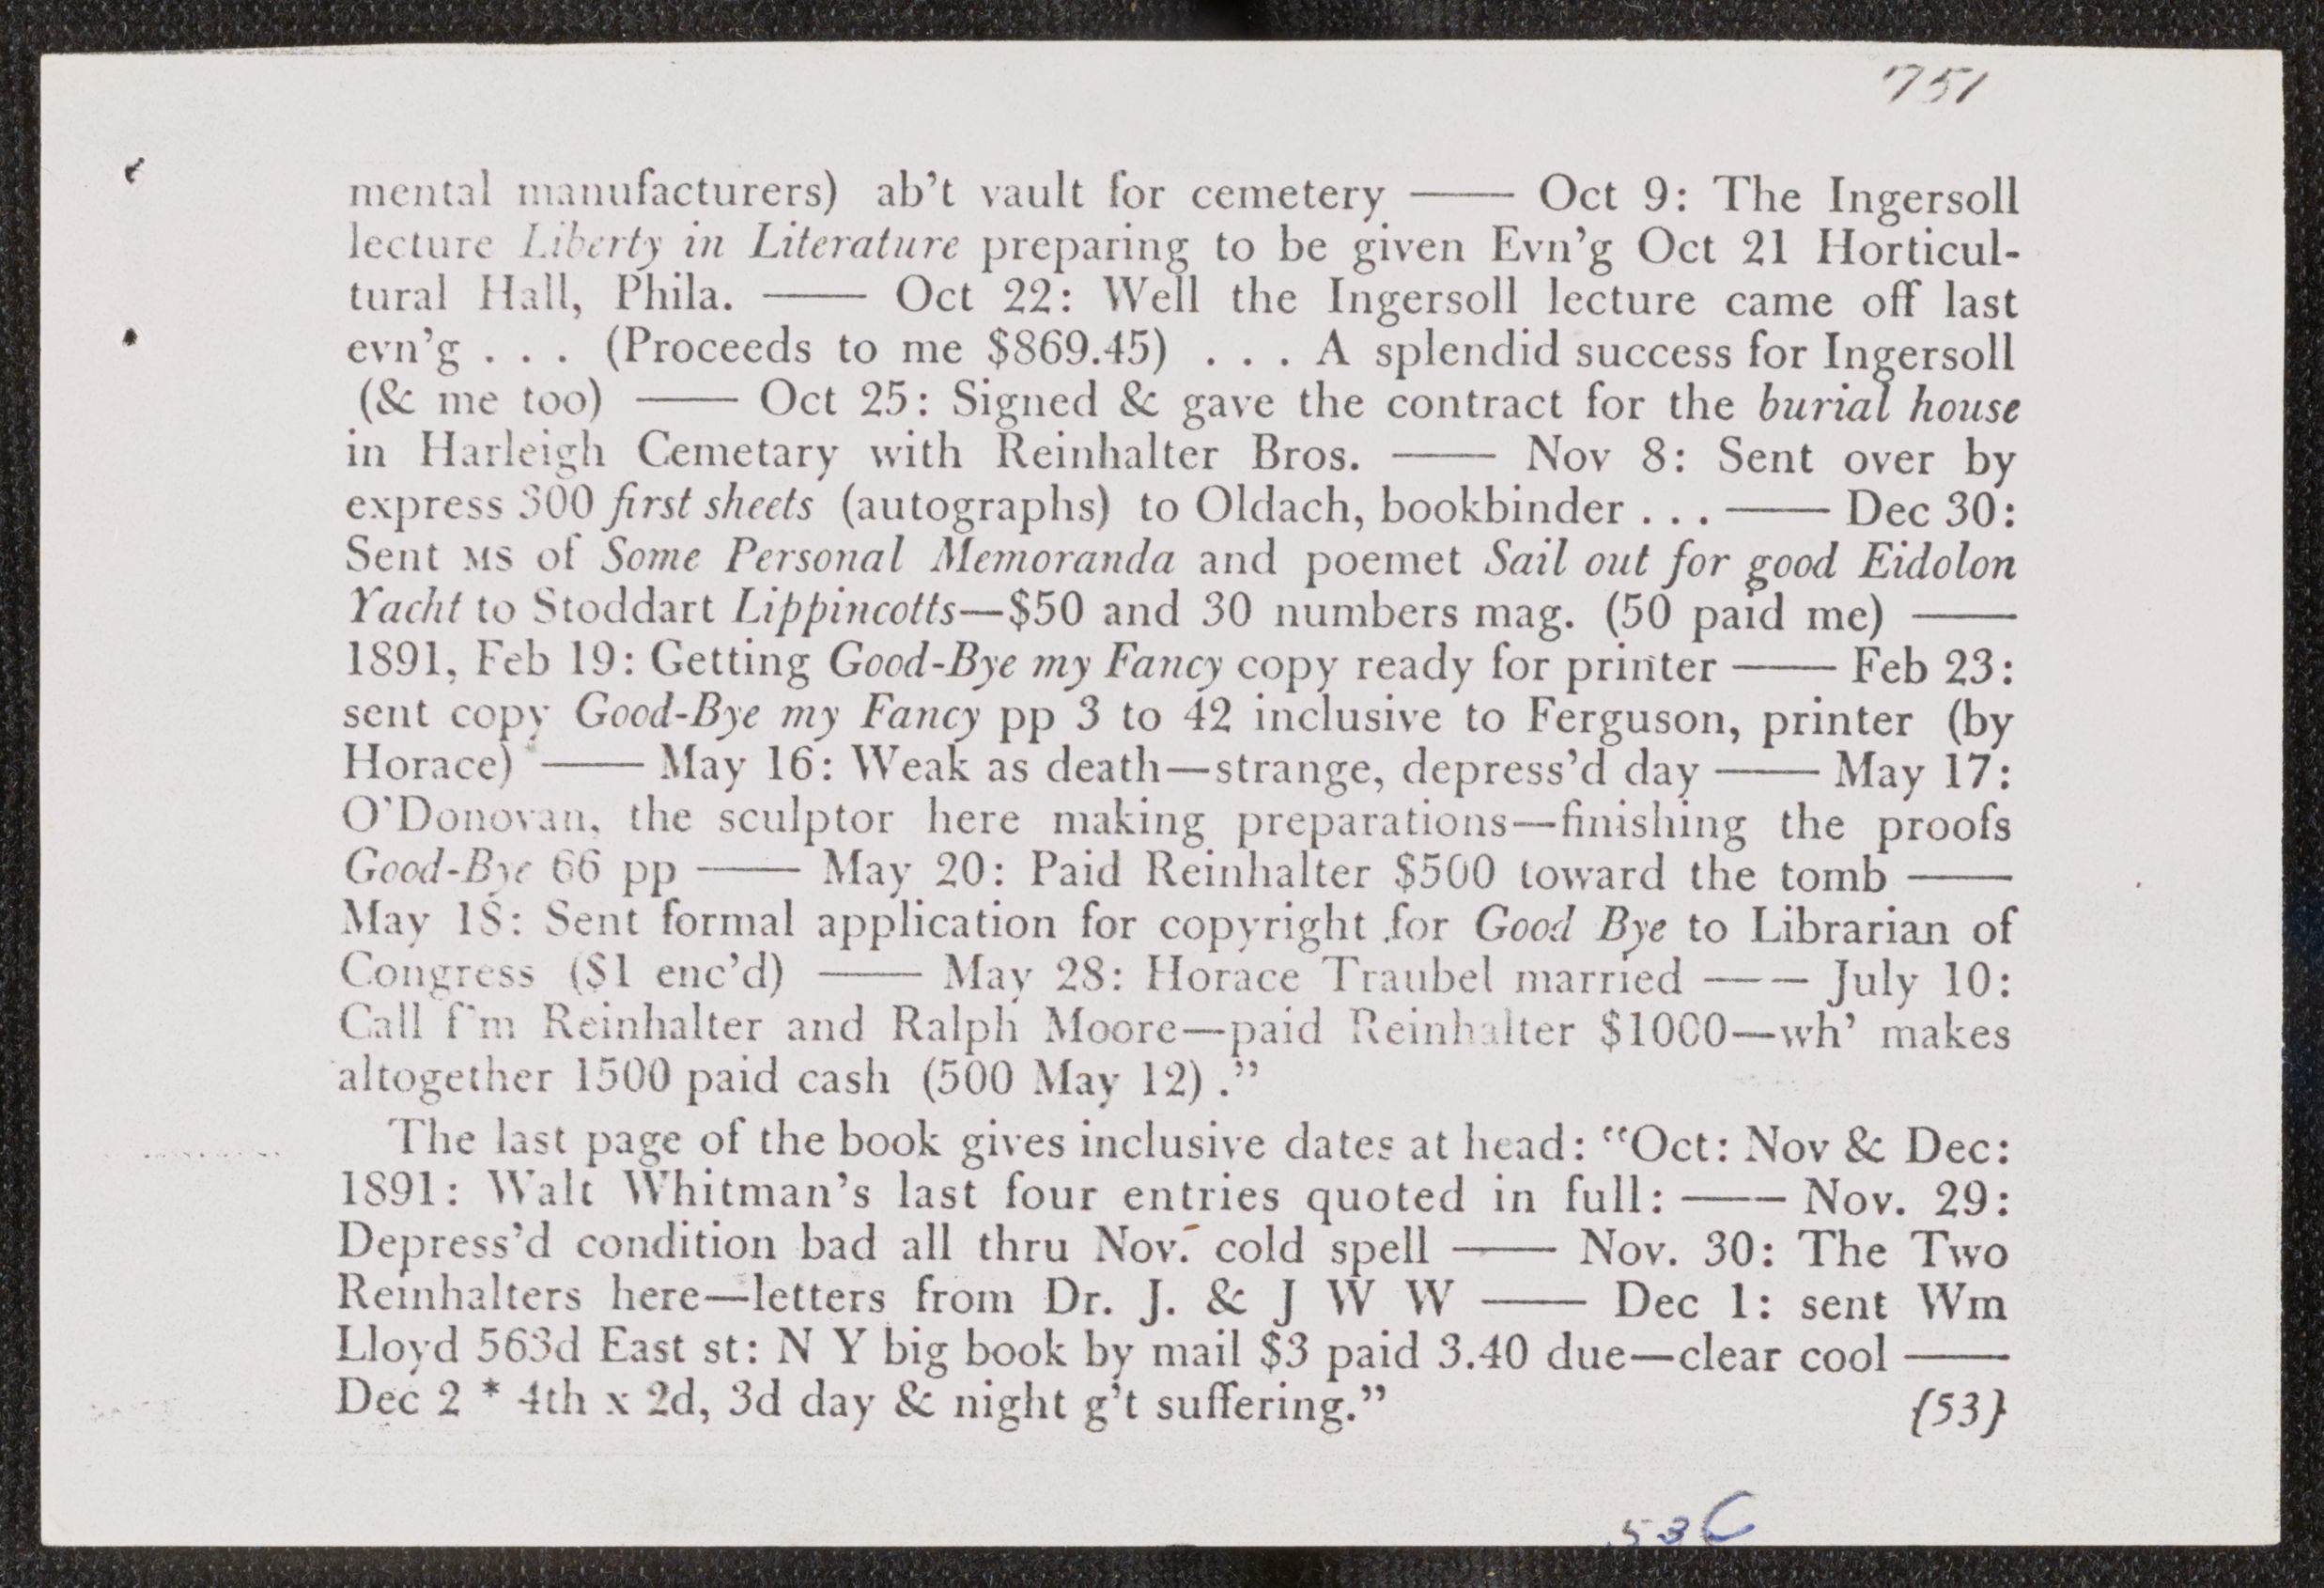 751
mental manufacturers) ab't vault for cemetery —— Oct 9: The Ingersoll
lecture Liberty in Literature preparing to be given Evn'g Oct 21 Horticul-
tural Hall, Phila. —— Oct 22: Well the Ingersoll lecture came off last
evn'g . . . (Proceeds to me $869.45) . . . A splendid success for Ingersoll
(& me too) —— Oct 25: Signed & gave the contract for the burial house
in Harleigh Cemetary with Reinhalter Bros. —— Nov 8: Sent over by
express 300 first sheets (autographs) to Oldach, bookbinder . . . —— Dec 30:
Sent MS of Some Personal Memoranda and poemet Sail out for good Eidolon
Yacht to Stoddart Lippincotts—$50 and 30 numbers mag. (50 paid me) ——
1891, Feb 19: Getting Good-Bye my Fancy copy ready for printer —— Feb 23:
sent copy Good-Bye my Fancy pp 3 to 42 inclusive to Ferguson, printer (by
Horace) —— May 16: Weak as death—strange, depress'd day —— May 17:
O'Donovan, the sculptor here making preparations—finishing the proofs
Good-Bye 66 pp —— May 20: Paid Reinhalter $500 toward the tomb ——
May 18: Sent formal application for copyright for Good Bye to Librarian of
Congress ($1 enc'd) —— May 28: Horace Traubel married —— July 10:
Call f'm Reinhalter and Ralph Moore—paid Reinhalter $1000—wh' makes
altogether 1500 paid cash (500 May 12)."
The last page of the book gives inclusive dates at head: "Oct: Nov & Dec:
1891: Walt Whitman's last four entries quoted in full: —— Nov. 29:
Depress'd condition bad all thru Nov. cold spell —— Nov. 30: The Two
Reinhalters here—letters from Dr. J. & J W W —— Dec 1: sent Wm
Lloyd 563d East st: N Y big book by mail $3 paid 3.40 due—clear cool ——
Dec 2 * 4th x 2d, 3d day & night g't suffering." {53}
53C